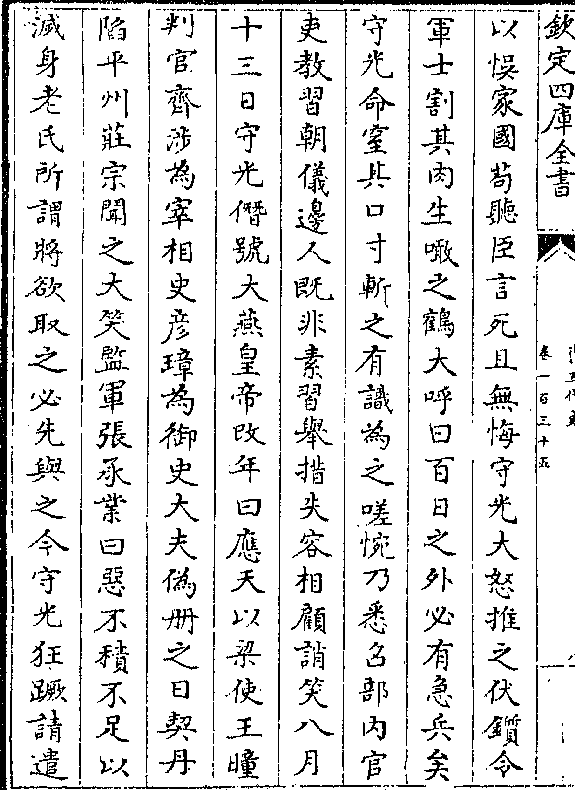 欽定四庫全書
卷一百三十五
以悞家國苟聽臣言死且無悔守光大怒推之伏鑕令
軍士割其肉生噉之鶴大呼曰百日之外必有急兵矣
守光命窒其口寸斬之有識為之嗟惋乃悉召部內官
吏教習朝儀邊人既非素習舉措失容相顧誚笑八月
十三日守光僭號大燕皇帝改年曰應天以梁使王瞳
判官齊涉為宰相史彦璋為御史大夫偽冊之日契丹
陷平州莊宗聞之大笑監軍張承業曰惡不積不足以
滅身老氏所謂將欲取之必先與之今守光狂蹶請遣